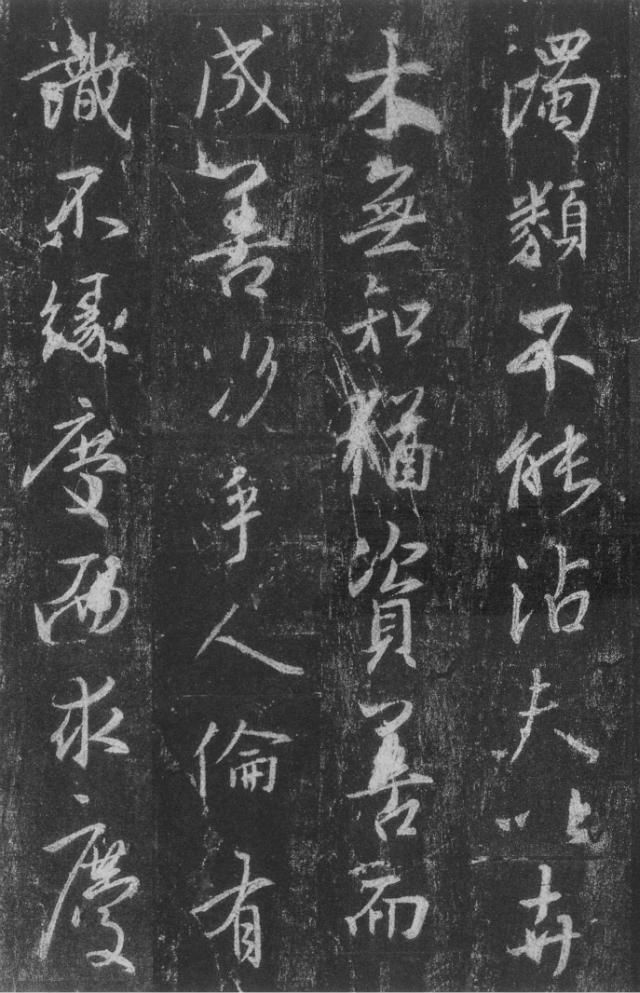 濁類不能沾夫以卉
木無知猶資善而
成善況乎人倫有
識不緣慶而求慶